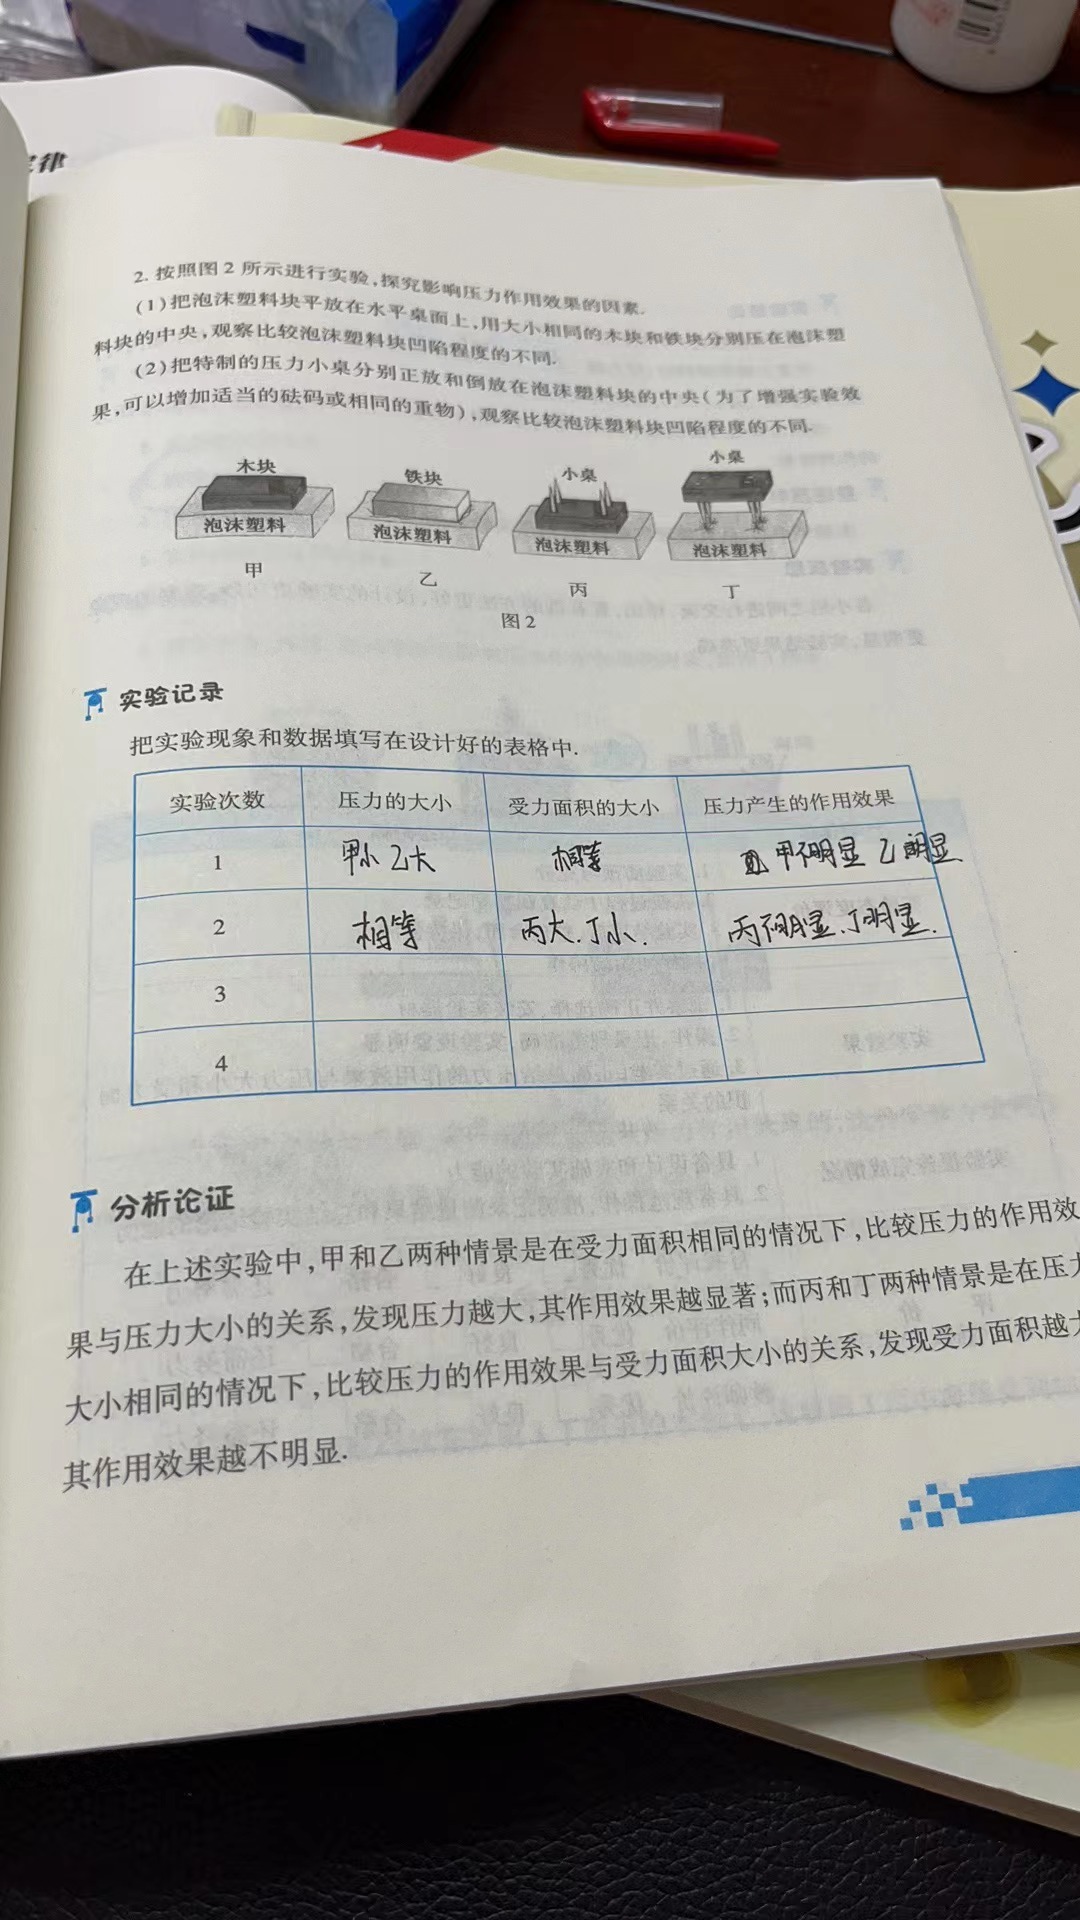 律
2. 按照图 2 所示进行实验,探究影响压力作用效果的因素.
(1)把泡沫塑料块平放在水平桌面上,用大小相同的木块和铁块分别压在泡沫塑
料块的中央,观察比较泡沫塑料块凹陷程度的不同.
(2)把特制的压力小桌分别正放和倒放在泡沫塑料块的中央(为了增强实验效
果,可以增加适当的砝码或相同的重物),观察比较泡沫塑料块凹陷程度的不同.
木块 铁块 小桌 小桌
泡沫塑料 泡沫塑料 泡沫塑料 泡沫塑料
甲 乙 丙 丁
图 2
实验记录
把实验现象和数据填写在设计好的表格中.
实验次数 压力的大小 受力面积的大小 压力产生的作用效果
1 甲小 乙大 相等 甲不明显 乙明显
2 相等 丙大.丁小. 丙不明显.丁明显.
3
4
分析论证
在上述实验中,甲和乙两种情景是在受力面积相同的情况下,比较压力的作用效
果与压力大小的关系,发现压力越大,其作用效果越显著;而丙和丁两种情景是在压力
大小相同的情况下,比较压力的作用效果与受力面积大小的关系,发现受力面积越大
其作用效果越不明显.